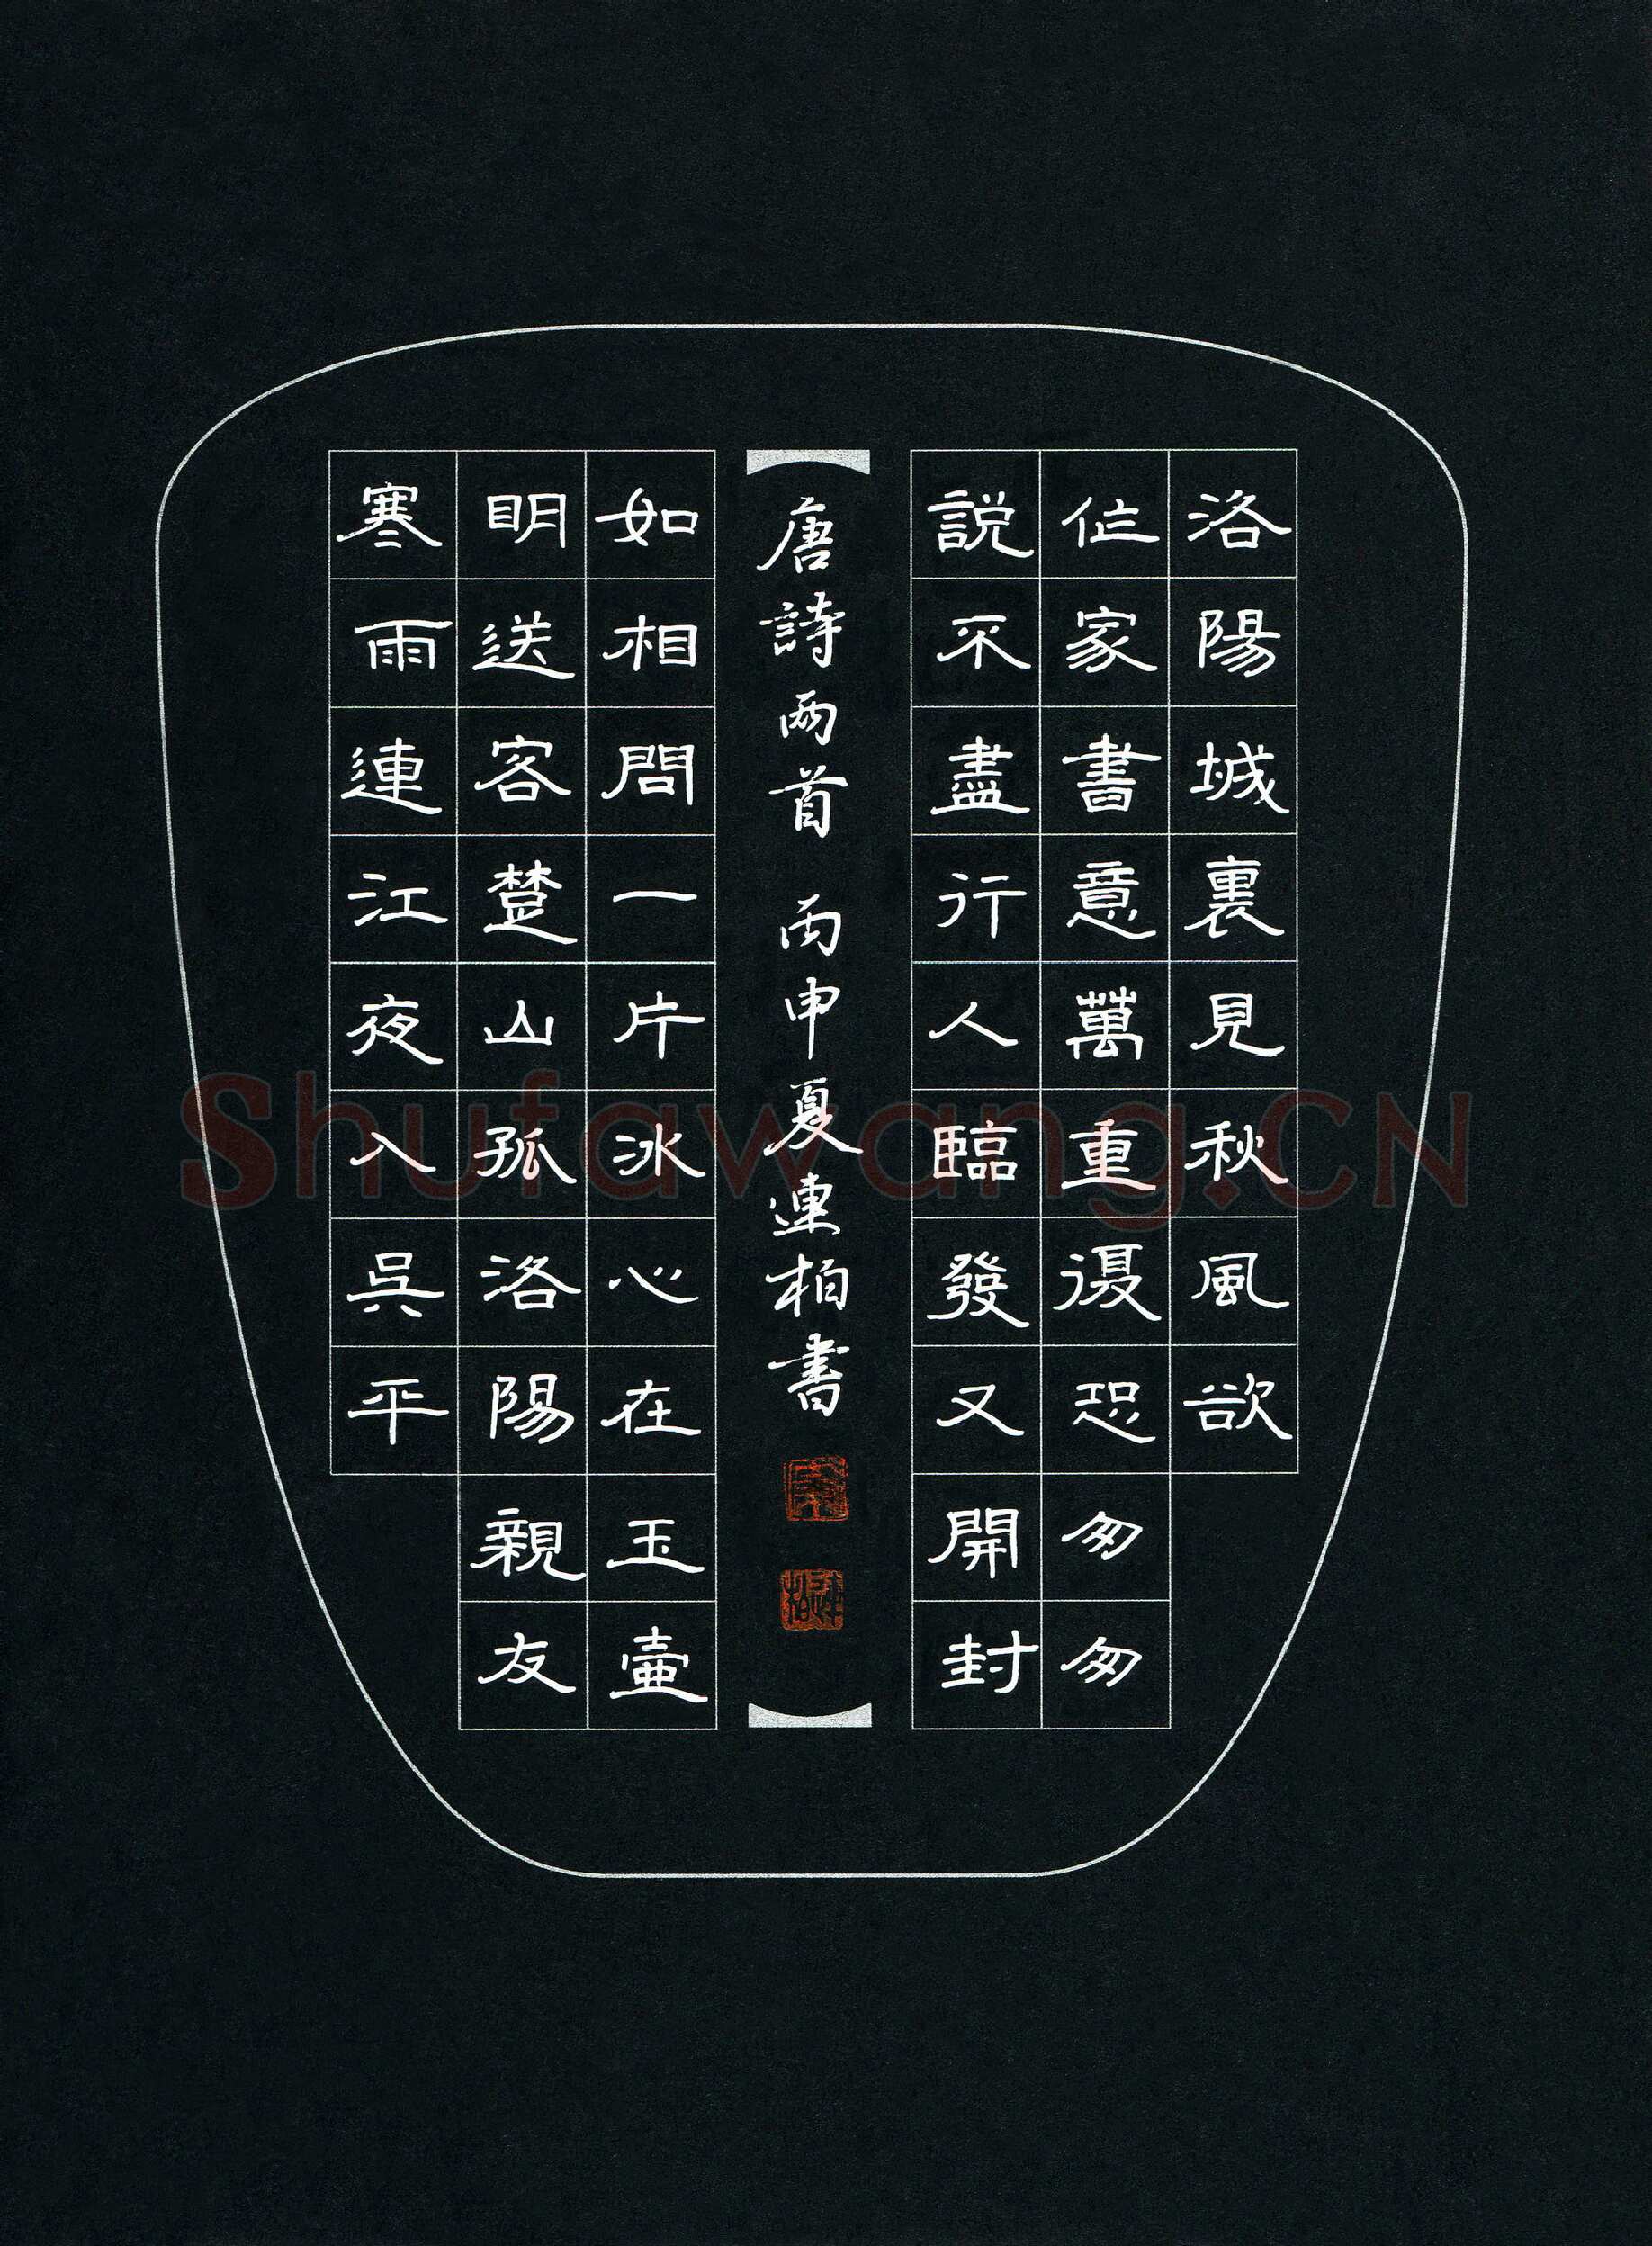 洛陽城裏見秋風欲
作家書意萬重復恐匆匆
説不盡行人臨發又開封
寒雨連江夜入吳平
明送客楚山孤洛陽親友
如相問一片冰心在玉壺
唐詩兩首 丙申夏連柏書
Shufawang.CN